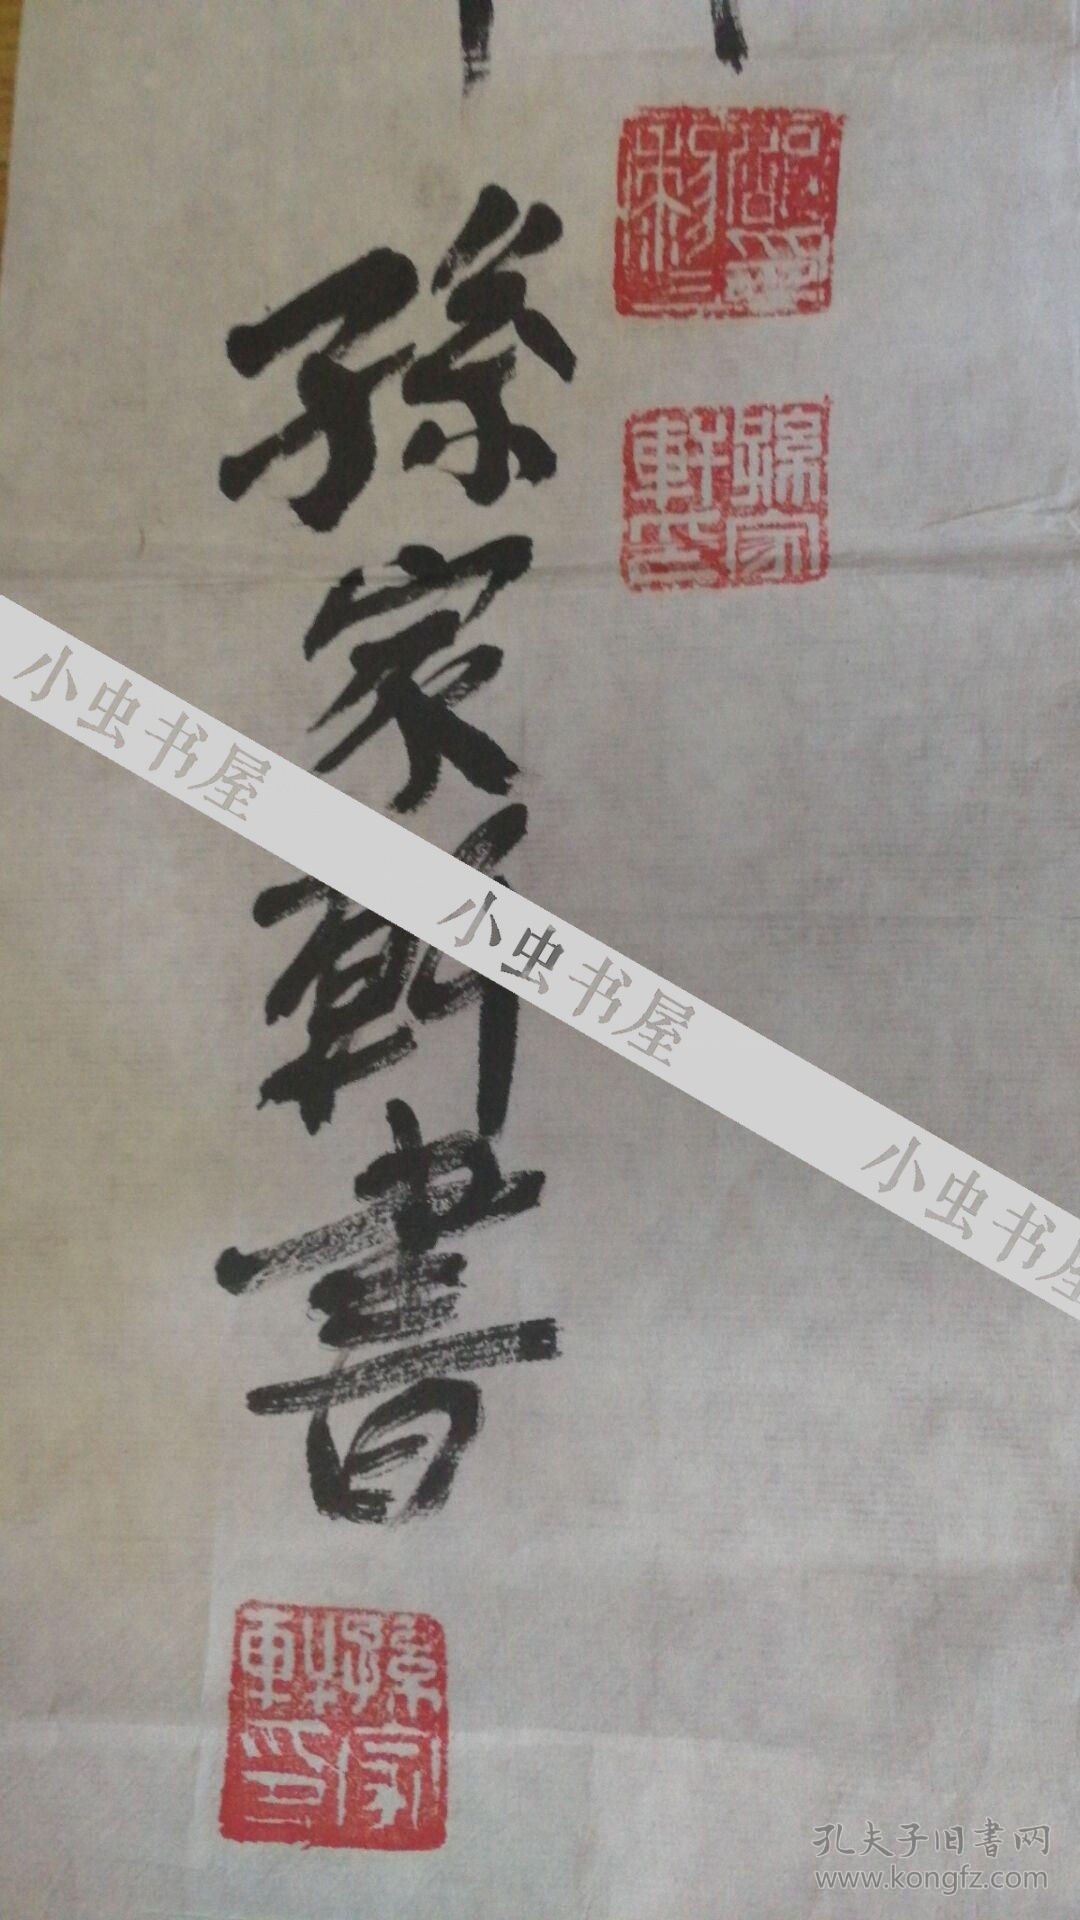 孫家軒書
孫家
軒印
孫家
軒印
小虫书屋
小虫书屋
小虫书屋
孔夫子旧書网
www.kongfz.com